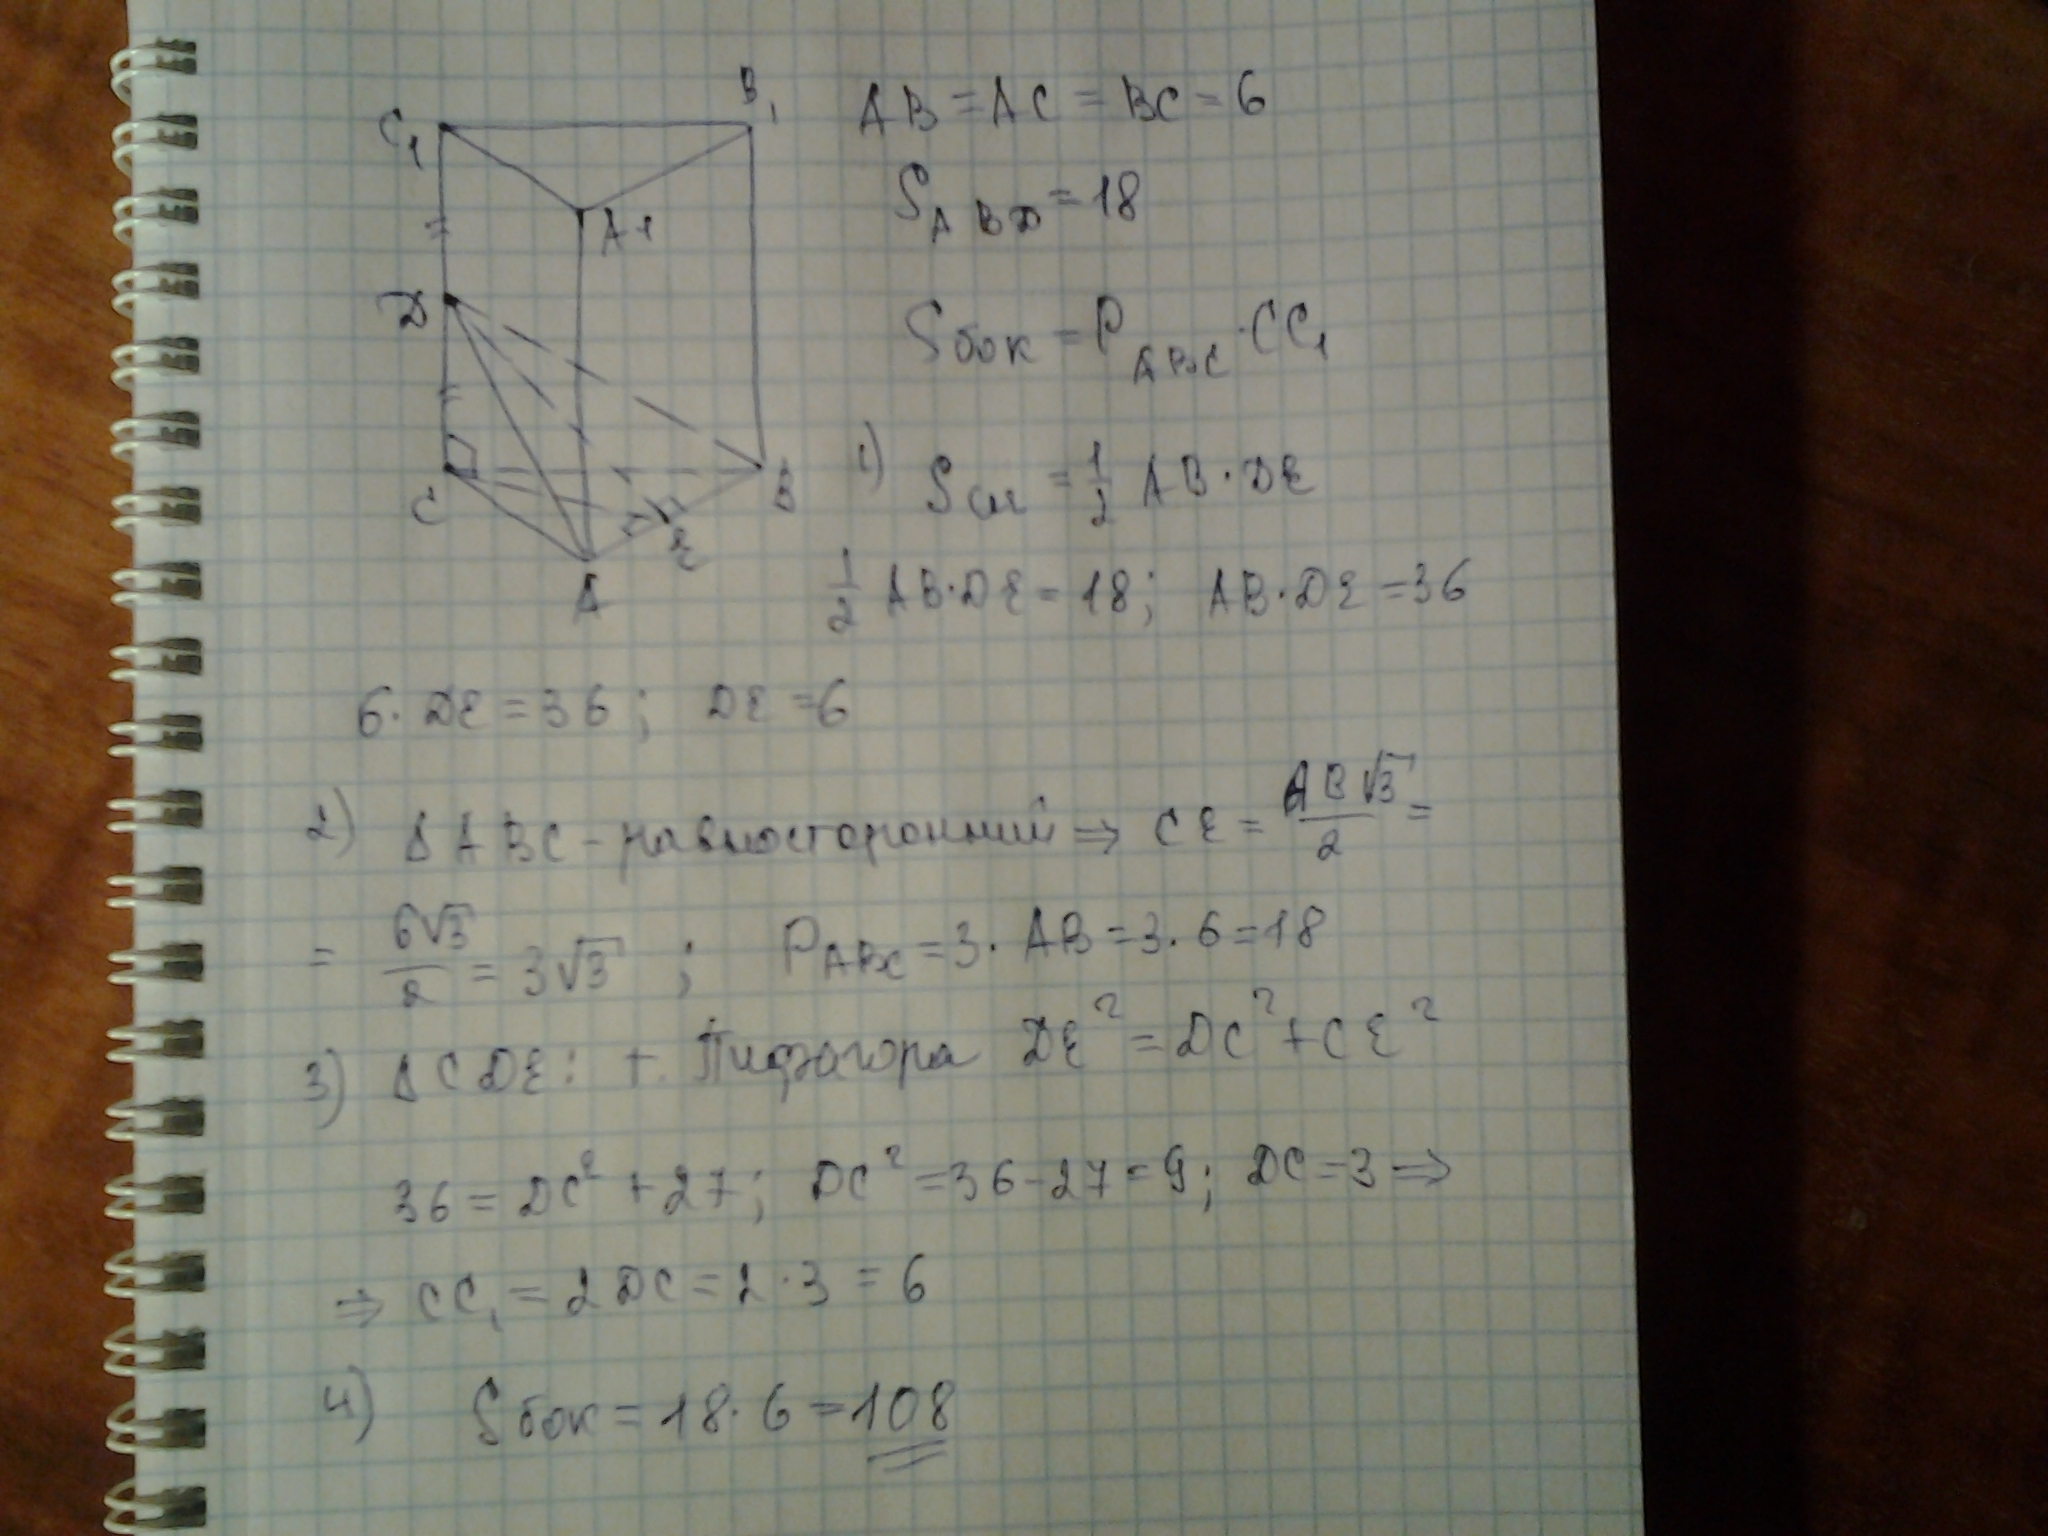 C₁
B₁
A1
D
C
B
E
A
AB = AC = BC = 6
S_ABD = 18
Sбок = P_ABC · CC₁
1) Sсеч = 1/2 AB · DE
1/2 AB · DE = 18; AB · DE = 36
6 · DE = 36; DE = 6
2) Δ ABC - равносторонний ⇒ CE = AB√3/2 =
= 6√3/2 = 3√3; P_ABC = 3 · AB = 3 · 6 = 18
3) Δ CDE: т. Пифагора DE² = DC² + CE²
36 = DC² + 27; DC² = 36 - 27 = 9; DC = 3 ⇒
⇒ CC₁ = 2DC = 2 · 3 = 6
4) Sбок = 18 · 6 = 108